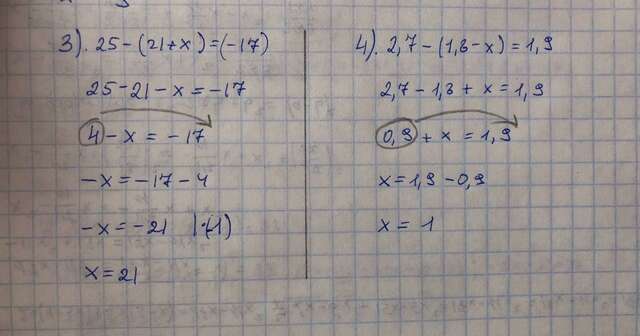 3). 25-(21+x)=(-17)
25-21-x=-17
4-x=-17
-x=-17-4
-x=-21 |·(-1)
x=21
4). 2,7-(1,8-x)=1,9
2,7-1,8+x=1,9
0,9+x=1,9
x=1,9-0,9
x=1